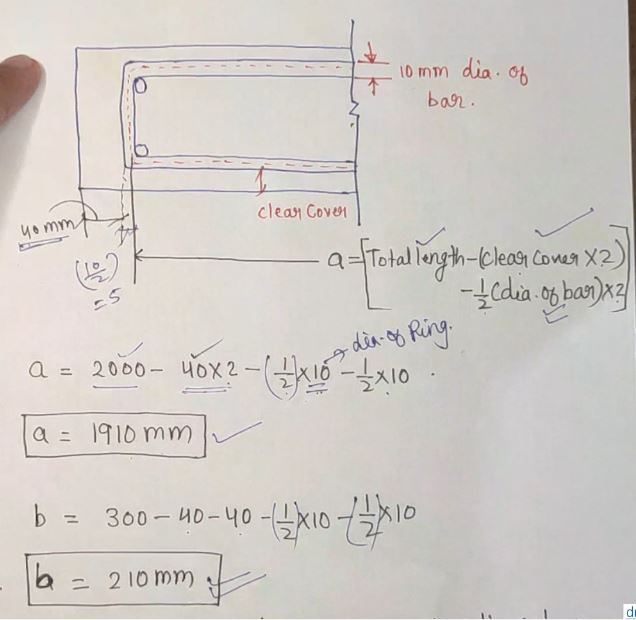 10 mm dia. of
bar.
clear cover
40mm
(10/2)
= 5
a = [Total length - (clear cover x 2)
- 1/2 (dia. of bar) x 2]
dia. of Ring.
a = 2000 - 40x2 - (1/2) x 10 - 1/2 x 10 .
a = 1910 mm
b = 300 - 40 - 40 - (1/2) x 10 - (1/2) x 10
b = 210 mm